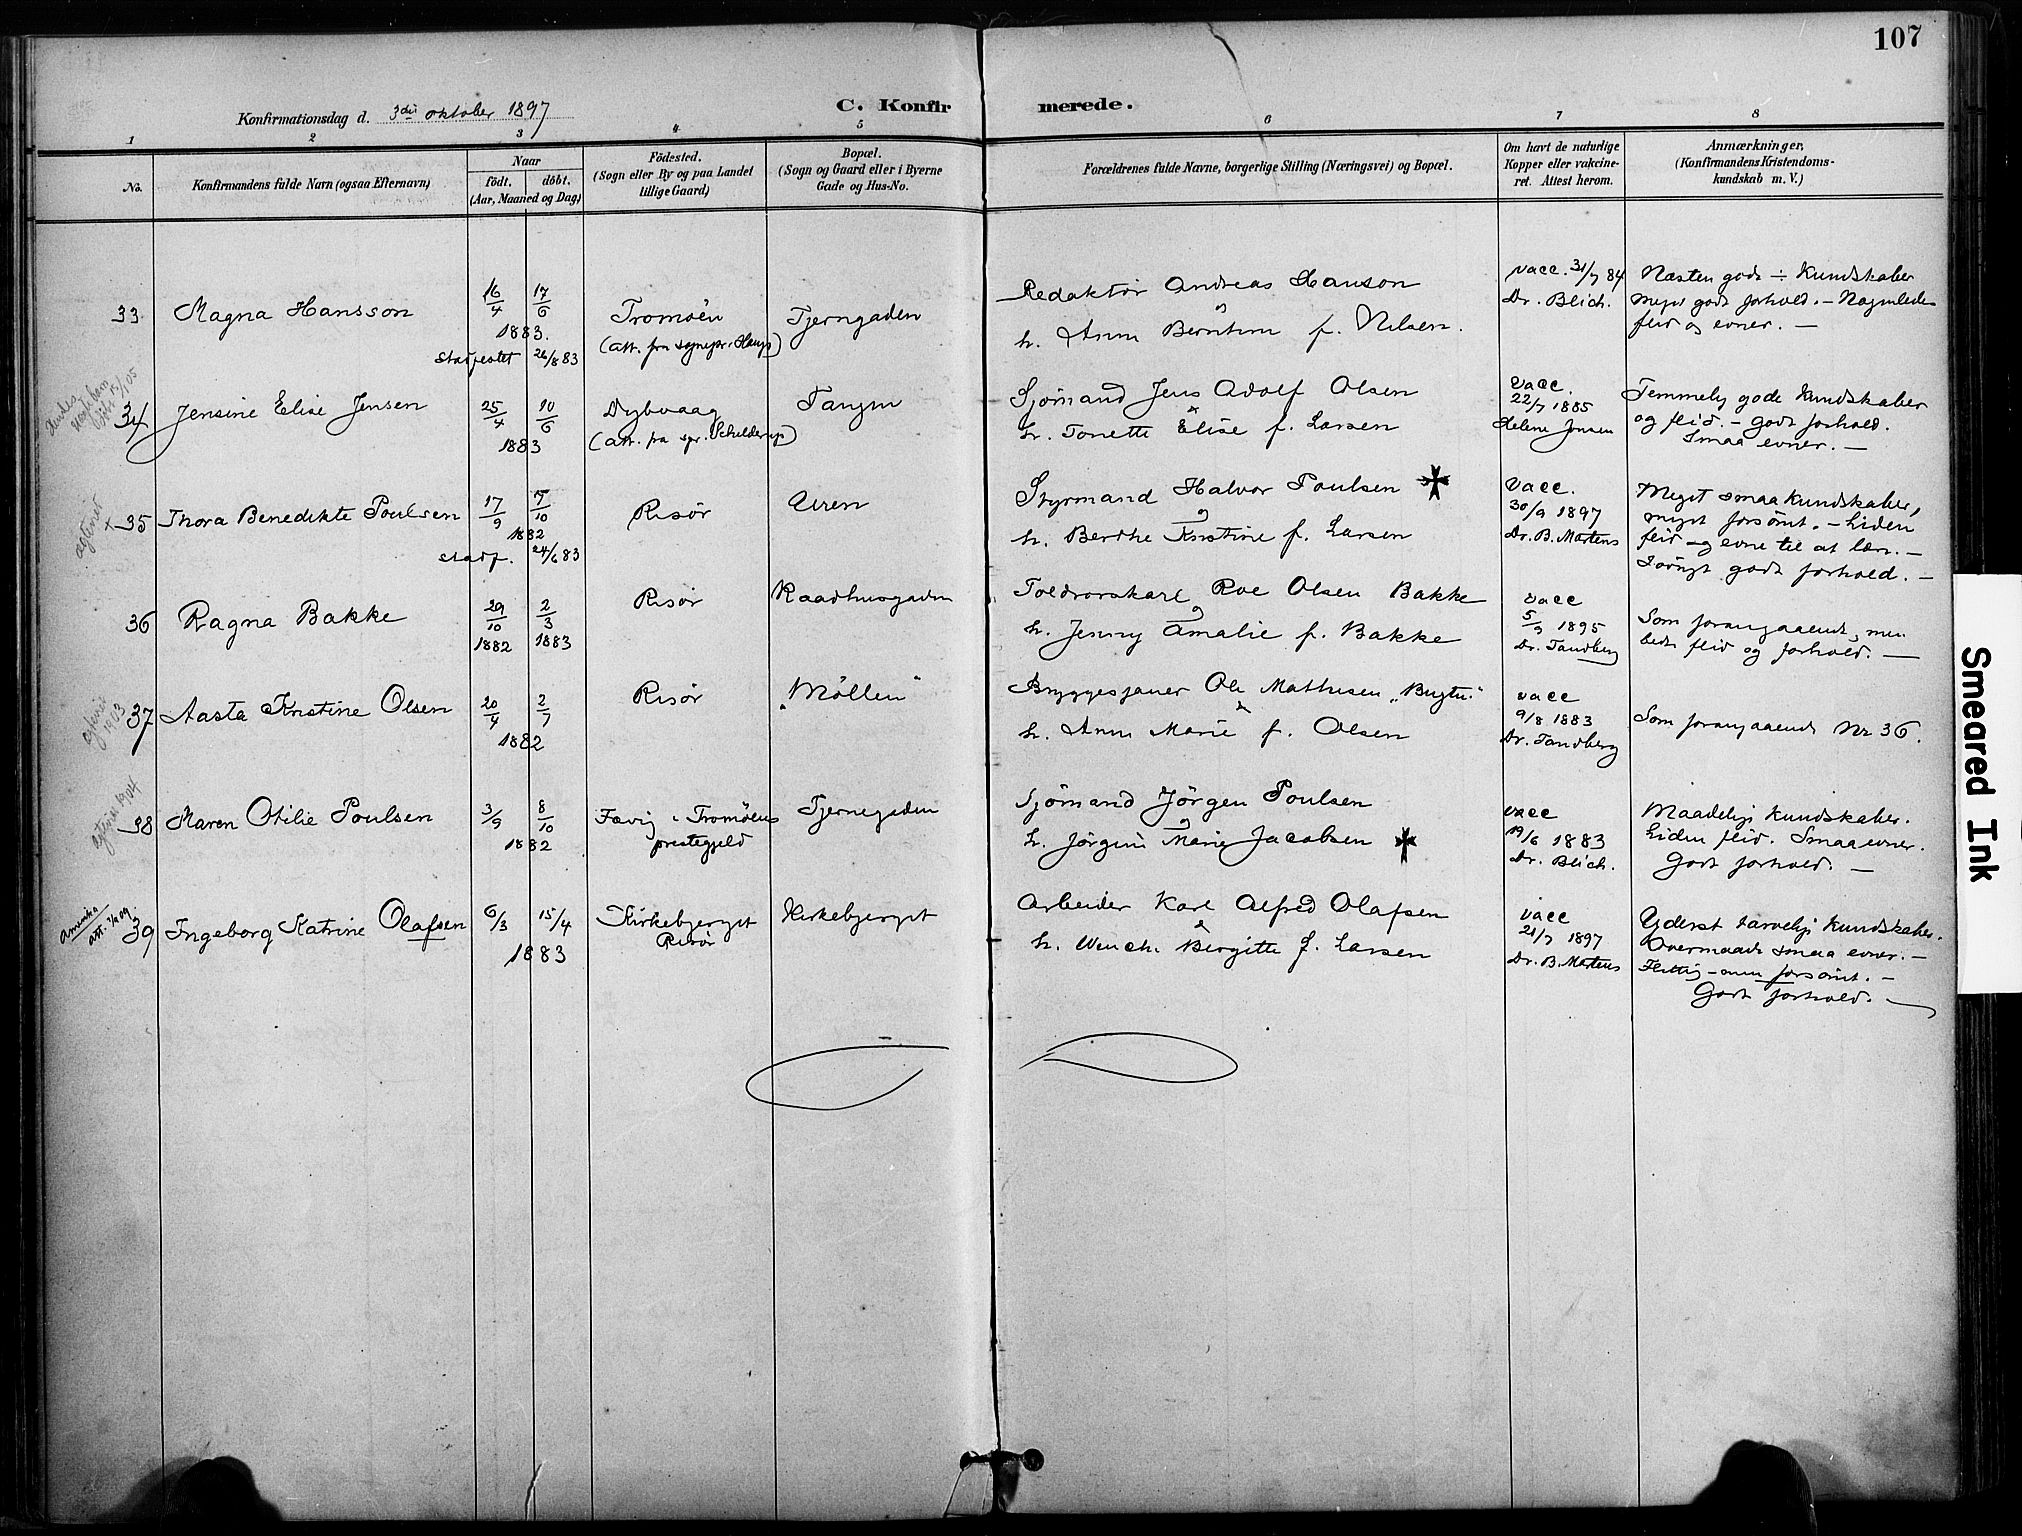 107
Konfirmationsdag d. 3die oktober 1897
C. Konfirmerede.
1 2 3 4 5 6 7 8
No.
Konfirmandens fulde Navn (ogsaa Efternavn)
Naar
födt. döbt.
(Aar, Maaned og Dag)
Födested.
(Sogn eller By og paa Landet
tillige Gaard)
Bopæl.
(Sogn og Gaard eller i Byerne
Gade og Hus-No.
Forældrenes fulde Navne, borgerlige Stilling (Næringsvei) og Bopæl.
Om havt de naturlige
Kopper eller vakcine-
ret. Attest herom.
Anmærkninger,
(Konfirmandens Kristendoms-
kundskab m. V.)
33 Magna Hansson
16/4 17/6
1883.
stadfestet 26/8 83
Tromöen
(att. fra sognepr. Haugs)
Tjerngaden
Redaktör Andreas Hanson
&
h. Anna Berntine f. Nilsen.
vacc. 31/7 84
Dr. Blich.
Næsten godt ÷ Kundskaber
meget godt forhold. – Nogenlede
flid og evner. –
34 Jensine Elise Jensen
25/4 10/6
1883
Dybvaag
(att. fra spr. Schelderup)
Tangen
Sjömand Jens Adolf Olsen
&
h. Tonette Elise f. Larsen
Vacc.
22/7 1885
Helene Jensen
Temmelig gode Kundskaber
og flid. – godt forhold.
Smaa evner. –
agteviet
+ 35 Thora Benedikte Poulsen
17/9 5/10
1882
stadf. 24/6 83
Risör
Uren
Styrmand Halvor Poulsen ✠
&
h. Berthe Kristine f. Larsen
Vacc.
30/9 1897
Dr. B. Martens
Meget smaa kundskaber,
meget forsömt. – Liden
flid og evne til at lære. –
Iövrigt godt forhold. –
36 Ragna Bakke
29/10 2/3
1882 1883
Risör
Raadhusgaden
Toldrorskarl Roe Olsen Bakke
&
h. Jenny Amalie f. Bakke
vacc
5/9 1895
Dr. Tandberg
Som forangaaende, men
bedre flid og forhold. –
agteviet
1903
37 Aasta Kristine Olsen
20/4 2/7
1882
Risör
"Möllen"
Bryggesjauer Ole Mathisen "Bugten"
&
h. Anne Marie f. Olsen
vacc
9/8 1883
Dr. Tandberg
Som forangaaende Nr 36.
agteviet 1904
38 Maren Otilie Poulsen
3/9 8/10
1882
Færvig i Tromöens
prestegjeld
Tjernegaden
Sjömand Jörgen Poulsen
&
h. Jörgine Marie Jacobsen ✠
vacc
19/6 1883
Dr. Blich.
Maadelige kundskaber.
Liden flid. Smaa evner.
Godt forhold. –
Amerika
39 Ingeborg Katrine Olafsen
6/3 15/4
1883
Kirkebjerget
Risör
Kirkebjerget
Arbeider Karl Alfred Olafsen
&
h. Wench. Birgitte f. Larsen
vacc
21/7 1897
Dr. B. Martens
Yderst tarvelige kundskaber.
Overmaade smaa evner. –
Flittig – men forsömt. –
Godt forhold. –
Smeared Ink